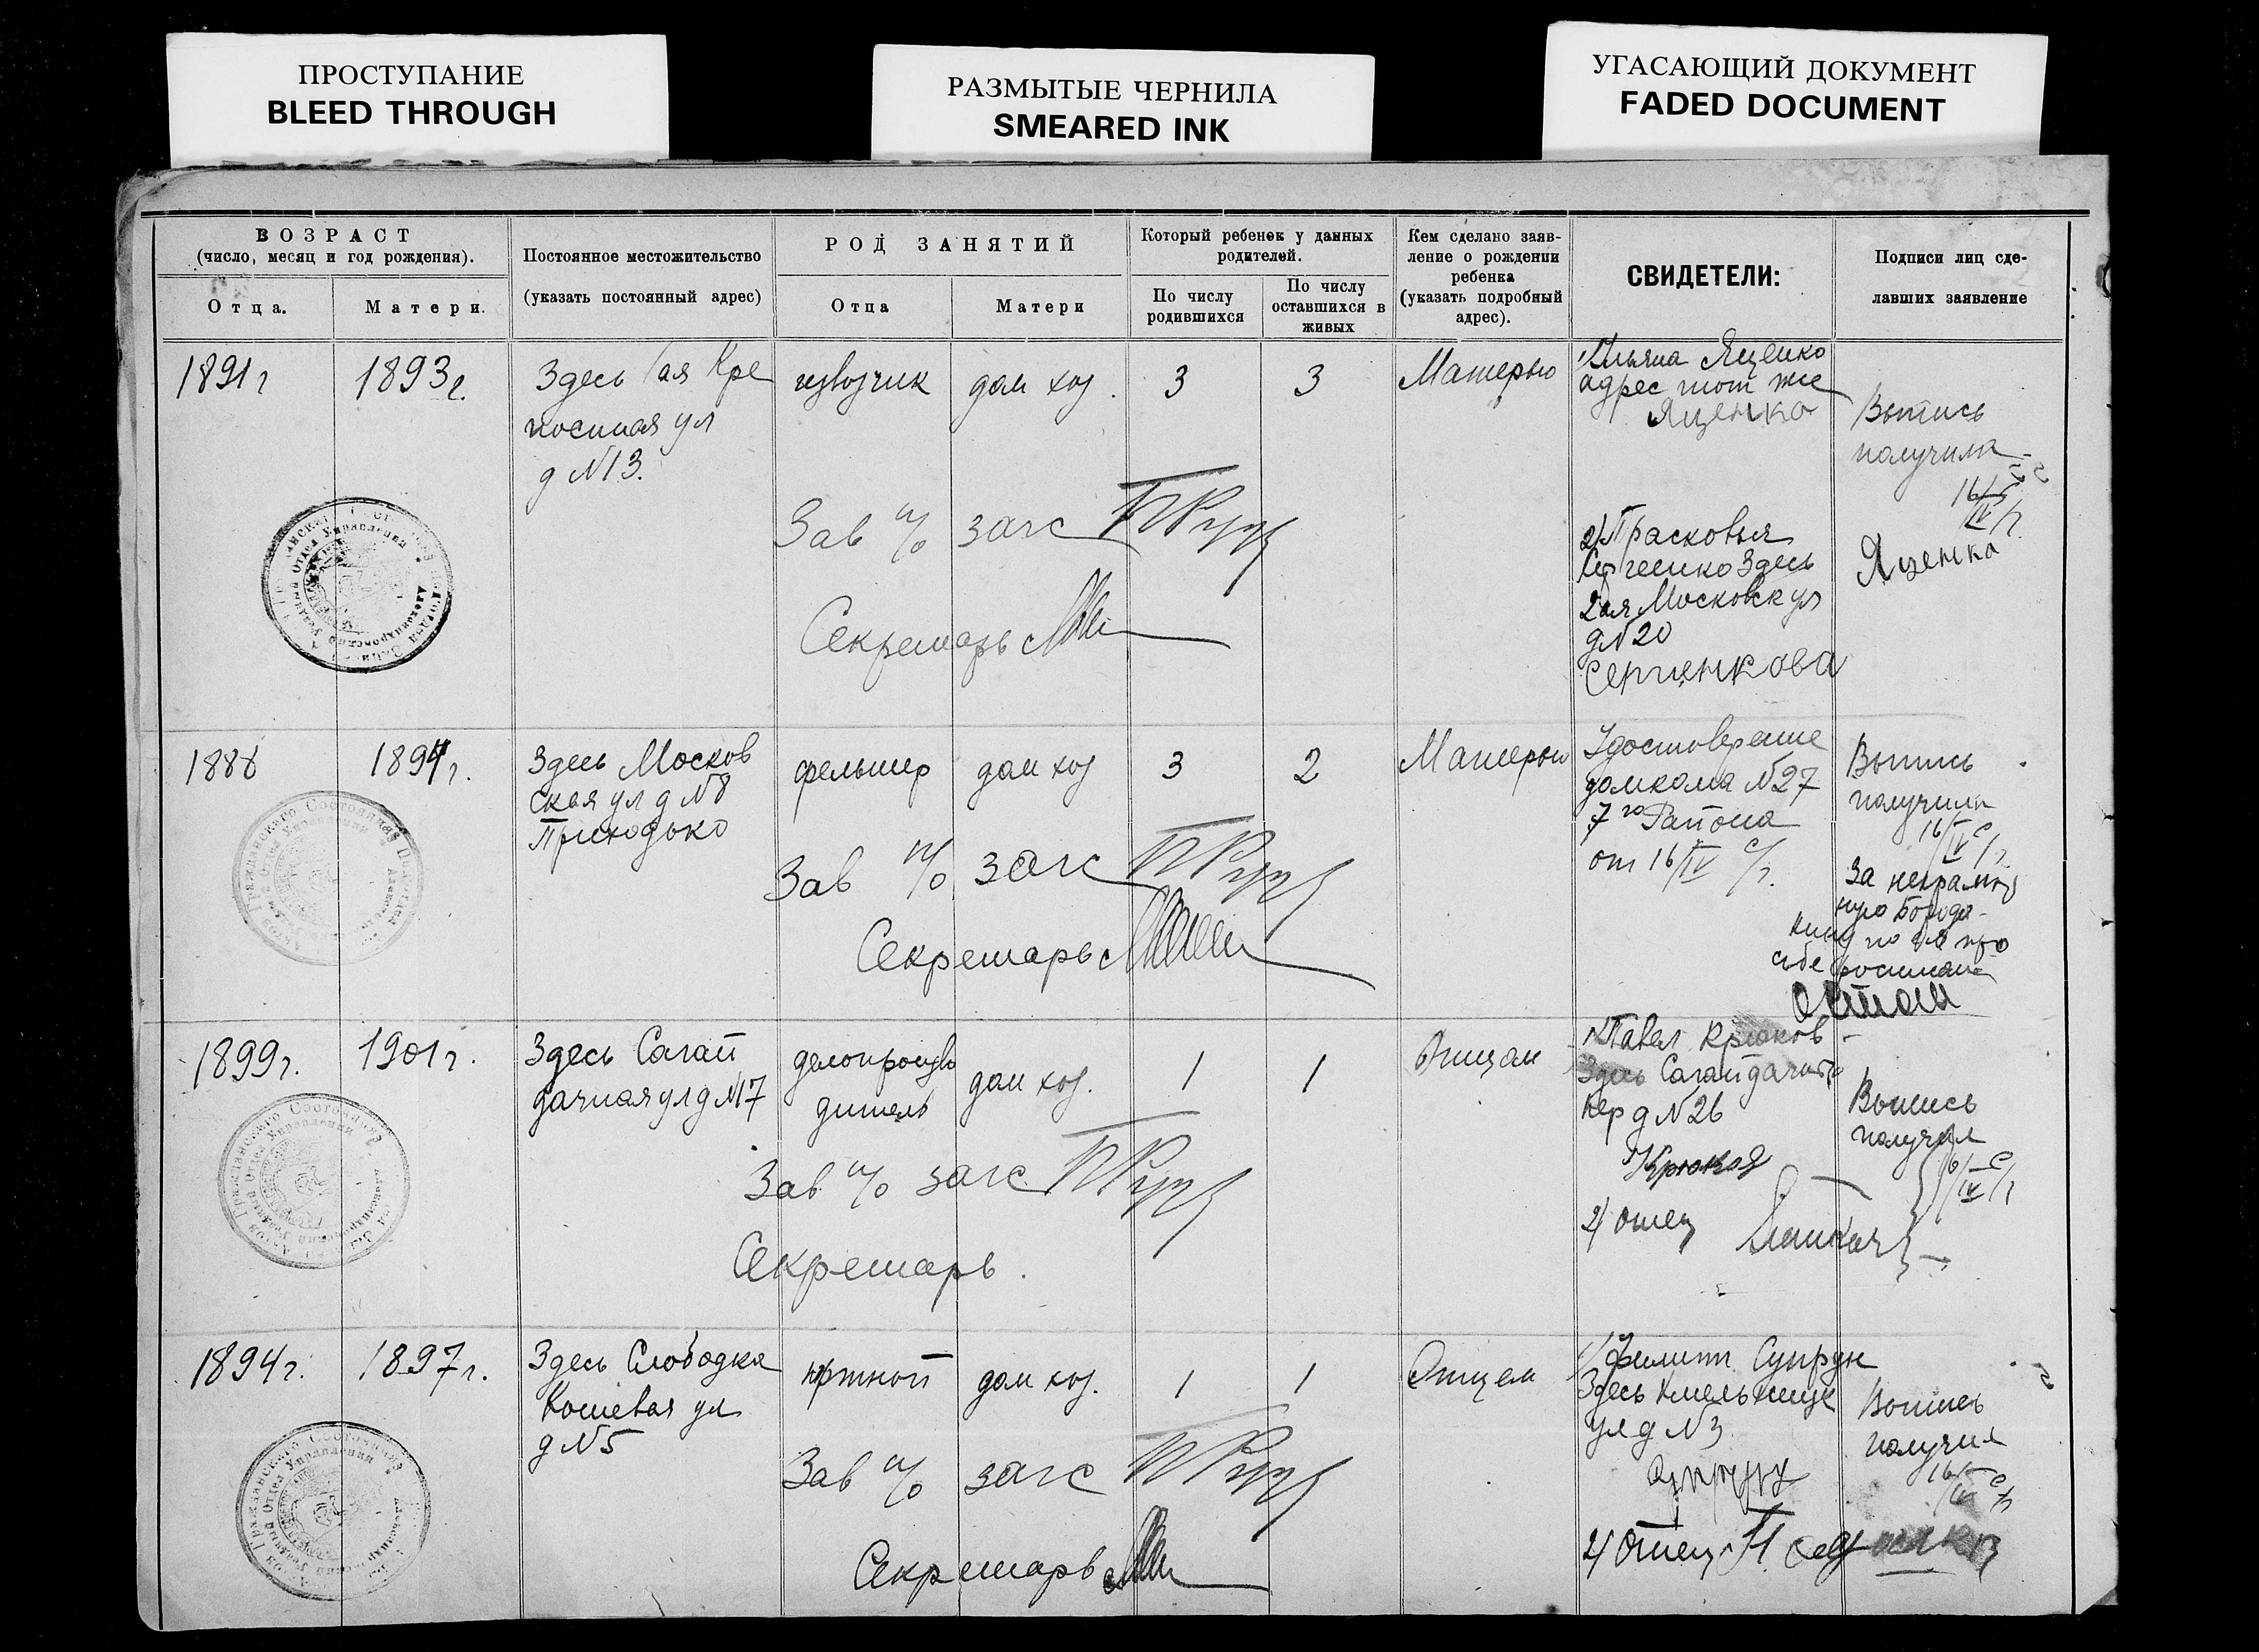 ПРОСТУПАНИЕ
BLEED THROUGH
РАЗМЫТЫЕ ЧЕРНИЛА
SMEARED INK
УГАСАЮЩИЙ ДОКУМЕНТ
FADED DOCUMENT
ВОЗРАСТ
(число, месяц и год рождения).
Отца.
Матери.
Постоянное местожительство
(указать постоянный адрес)
РОД ЗАНЯТИЙ
Отца
Матери
Который ребенок у данных
родителей.
По числу
родившихся
По числу
оставшихся в
живых
Кем сделано заяв-
ление о рождении
ребенка
(указать подробный
адрес).
СВИДЕТЕЛИ:
Подписи лиц сде-
лавших заявление
1891г
1893г.
Здесь 1ая Кре
постная ул
д N13.
извозчик
дом хоз.
3
3
Матерью
Яценко
адрес тот же
Яценко
2) Прасковья
Здесь
2ая Московск ул
д N20
Сергиенкова
Выпись
получила
16/IV
Яценко
Зав п/о загс
Секретарь
1888
1894г.
Здесь Москов
ская ул д N8
Приходько
фельшер
дом хоз
3
2
Матерью
Удостоверение
домкома N27
7го Района
от 16/IV с/г.
Выпись
получила
16/IV с/г
За неграмот
ную
по её про
сьбе
Зав п/о загс
Секретарь
1899г.
1901г.
Здесь Сагай
дачная ул д N17
делопроизво
дитель
дом хоз.
1
1
Отцом
1) Павел Крюков
Здесь Сагайдачн
пер д N26
Крюков
2) Отец
Выпись
получил
16/IV с/г
Зав п/о загс
Секретарь.
1894г.
1897г.
Здесь Слободка
Кошевая ул
д N5
портной
дом хоз.
1
1
Отцем
1) Филипп Супрун
Здесь Хмельницк
ул д N3
Супрун
2) Отец П.
Выпись
получил
16/IV с/г
Зав п/о загс
Секретарь